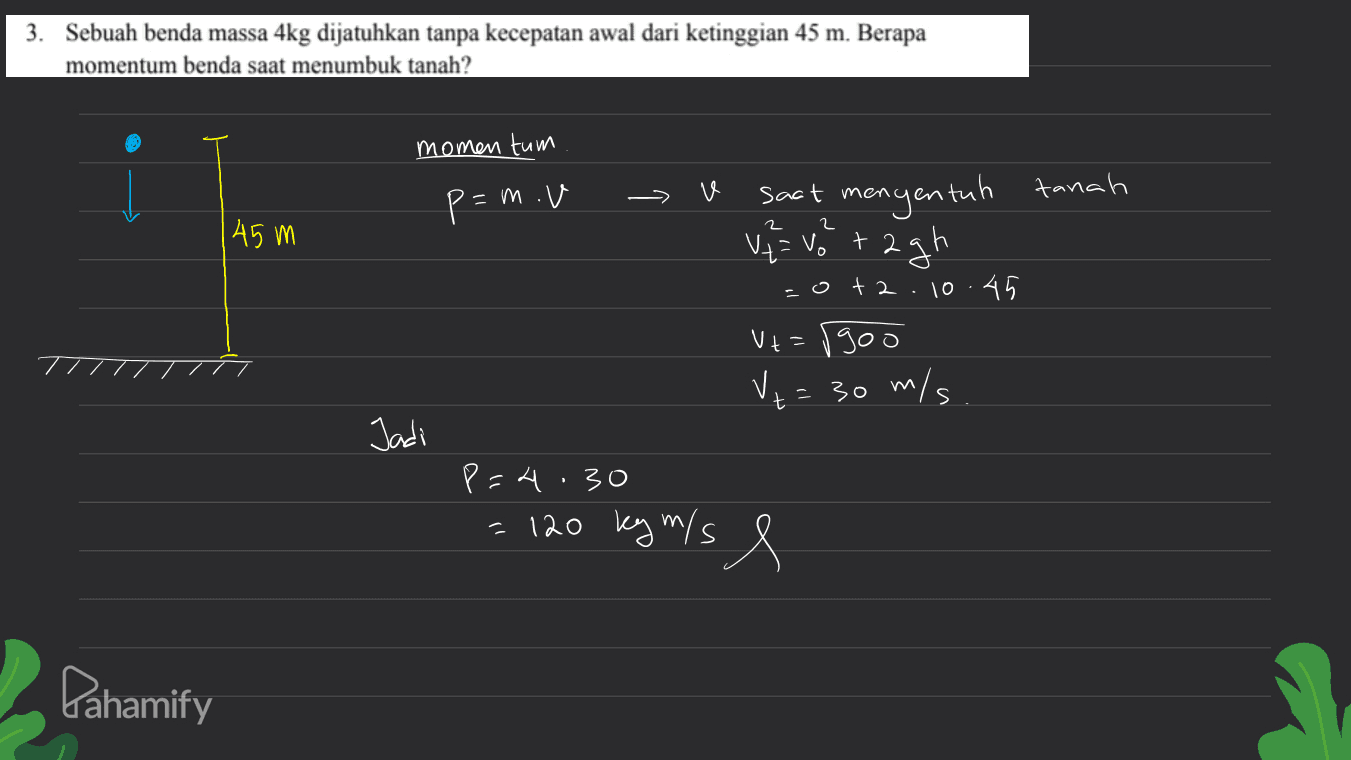 3. Sebuah benda massa 4kg dijatuhkan tanpa kecepatan awal dari ketinggian 45 m. Berapa
momentum benda saat menumbuk tanah?
momentum
p = m.v → v saat menyentuh tanah
45 m
Vt² = V0² + 2gh
= 0 + 2 . 10 . 45
Vt = √900
Vt = 30 m/s.
Jadi
P = 4 . 30
= 120 kg m/s
Pahamify